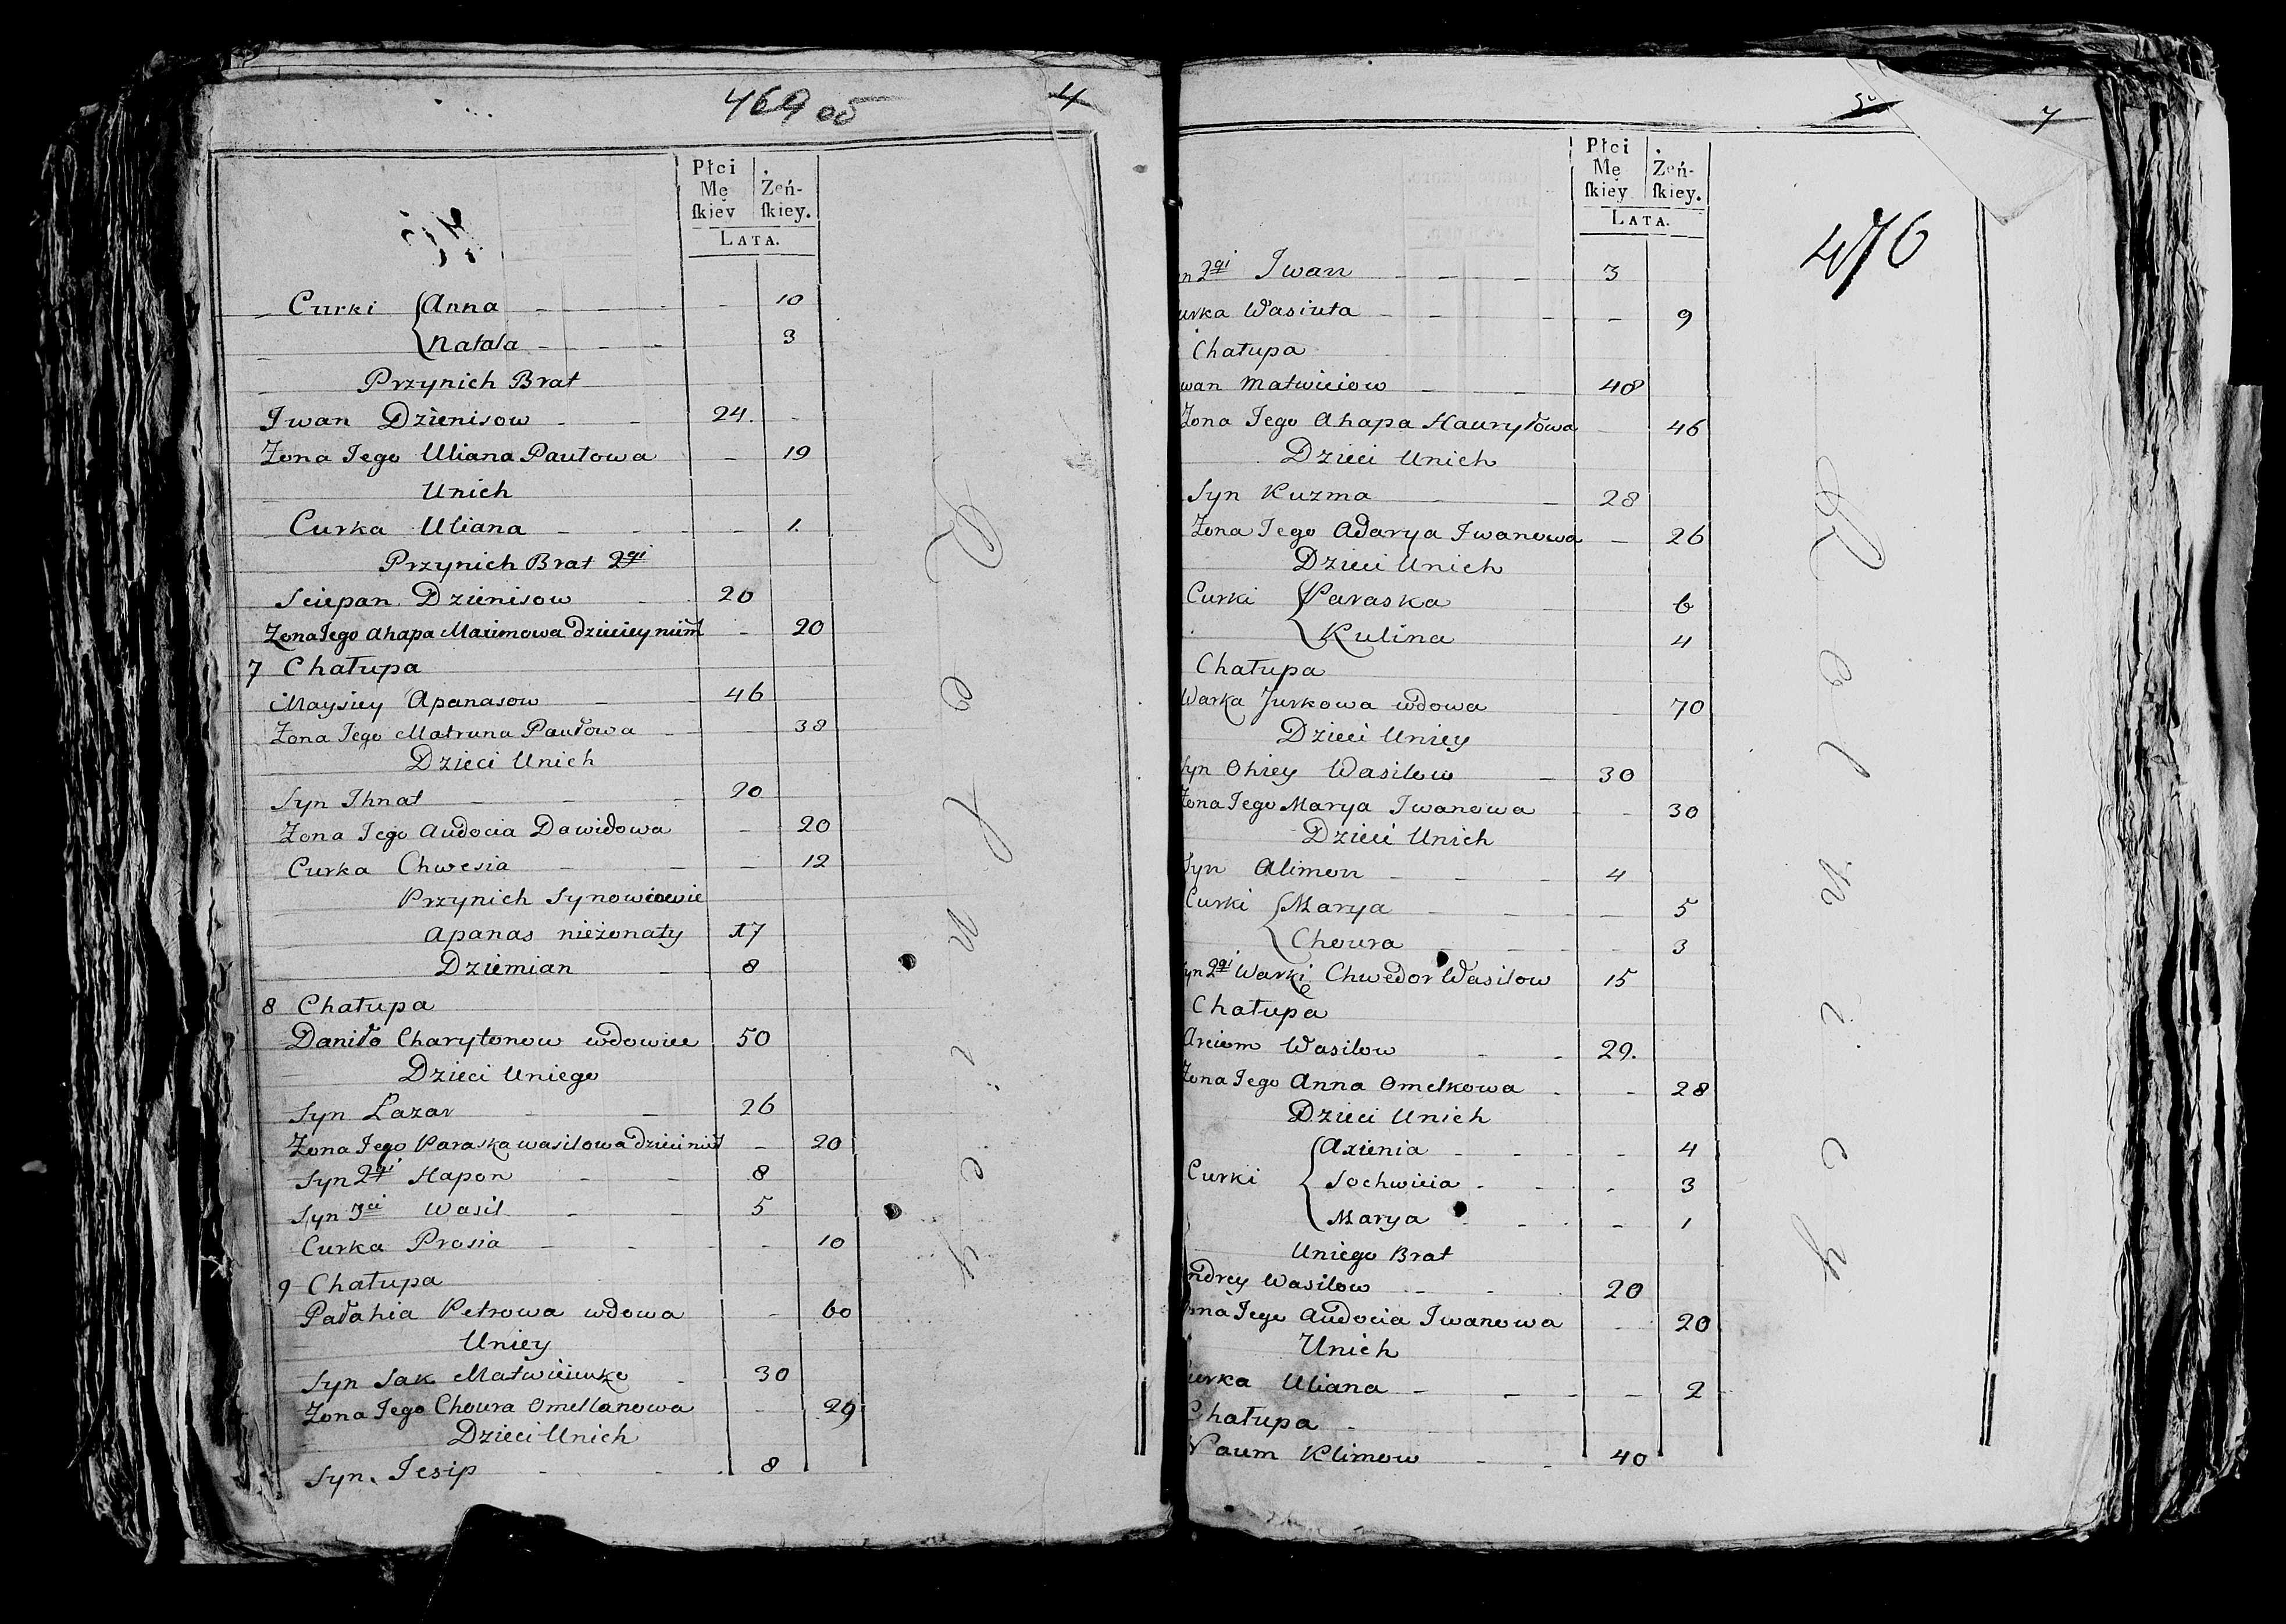 469 об
4
Płci
Mę
ſkiey
Żeń-
ſkiey.
LATA.
Curki Anna - - - 10
Natala - - - 3
Przynich Brat
Iwan Dzienisow - - 24. -
Żona Jego Uliana Pautowa - 19
Unich
Curka Uliana - - - 1.
Przynich Brat 2gi
Sciepan Dzienisow - 20
Żona Jego Ahapa Maximowa dzieciey niem - 20
7 Chałupa
Maysiey Apanasow - 46
Żona Jego Matruna Pautowa - - 38
Dzieci Unich
Syn Ihnat - - - 20
Żona Jego Audocia Dawidowa - 20
Curka Chwesia - - - 12
Przynich Synowcowie
Apanas nieżonaty 17
Dziemian - 8
8 Chałupa
Daniło Charytonow wdowiec 50
Dzieci Uniego
Syn Łazar - - 26
Żona Jego Paraska wasilowa dzieci nie - 20
Syn 2gi Hapon - - 8
Syn 3ci Wasil - - 5
Curka Prosia - - - - 10
9 Chałupa
Pałahia Petrowa wdowa - 60
Uniey
Syn Sak Matwieiewko - 30
Żona Jego Choura Omellanowa - 29
Dzieci Unich
Syn Jesip - - 8
R o l n i c y
5
7
476
Płci
Mę
ſkiey
Żeń-
ſkiey.
LATA.
n 2gi Iwan - - - 3
urka Wasiuta - - - - 9
Chałupa
wan Matwieiow - - 48
Żona Jego Ahapa Hauryłowa - 46
Dzieci Unich
Syn Kuzma - - 28
Żona Jego Adarya Iwanowa - 26
Dzieci Unich
Curki Paraska 6
Kulina 4
Chałupa
Warka Jurkowa wdowa - 70
Dzieci Uniey
Syn Ohiey Wasilow - 30
Żona Jego Marya Iwanowa - - 30
Dzieci Unich
Syn Alimon - - - 4
Curki Marya - - - 5
Choura - - - 3
yn 2gi Warki Chwedor Wasilow 15
Chałupa
Arciem Wasilow - - 29.
Żona Jego Anna Omelkowa - - 28
Dzieci Unich
Axienia - - - - 4
Curki Sochwicia - - - 3
Marya - - - 1
Uniego Brat
ndrey Wasilow - - 20
ona Jego Audocia Iwanowa - 20
Unich
urka Uliana - - - - 2
Chałupa -
Naum Klimow - - 40
R o l n i c y